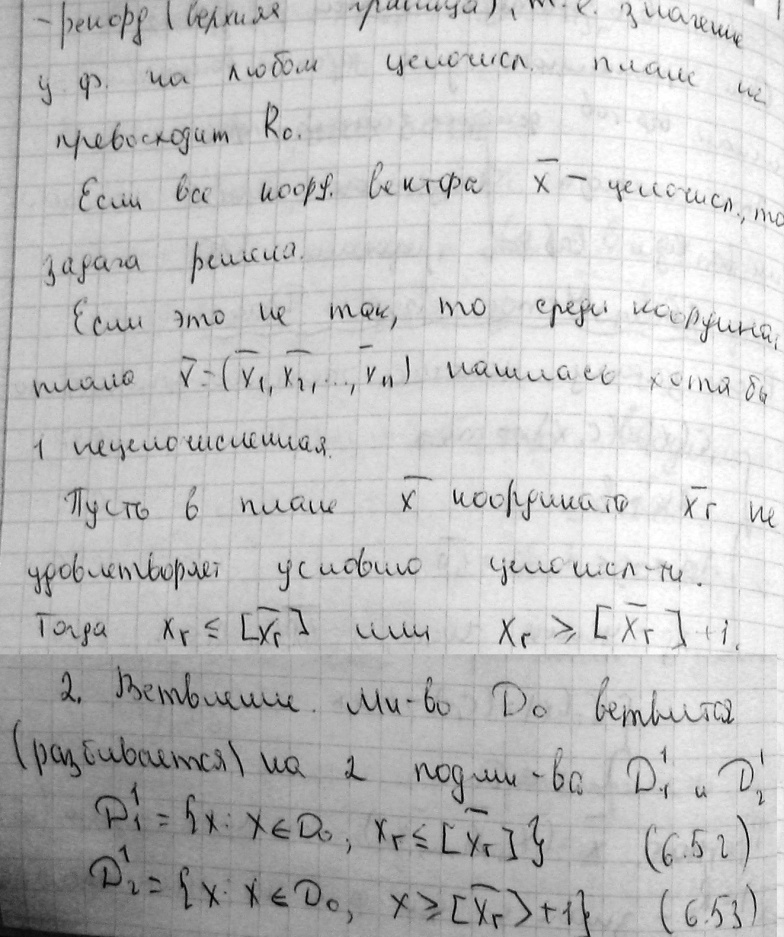 -рекорд (верхняя граница), т.е. значение
у ф. на любом целочисл. плане не
превосходит R₀.
Если все коорд. вектора x̅ – целочисл., то
задача решена.
Если это не так, то среди координат
плана x̅=(x̅₁, x̅₂, ..., x̅ₙ) нашлась хотя бы
1 нецелочисленная.
Пусть в плане x̅ координата x̅ᵣ не
удовлетворяет условию целочисл-ти.
Тогда xᵣ ≤ [x̅ᵣ] или xᵣ ≥ [x̅ᵣ]+1.
2. Ветвление. Мн-во D₀ ветвится
(разбивается) на 2 подмн-ва D₁¹ и D₂¹
D₁¹ = {x: x∈D₀, xᵣ ≤ [x̅ᵣ]} (6.52)
D₂¹ = {x: x∈D₀, x ≥ [x̅ᵣ>+1} (6.53)